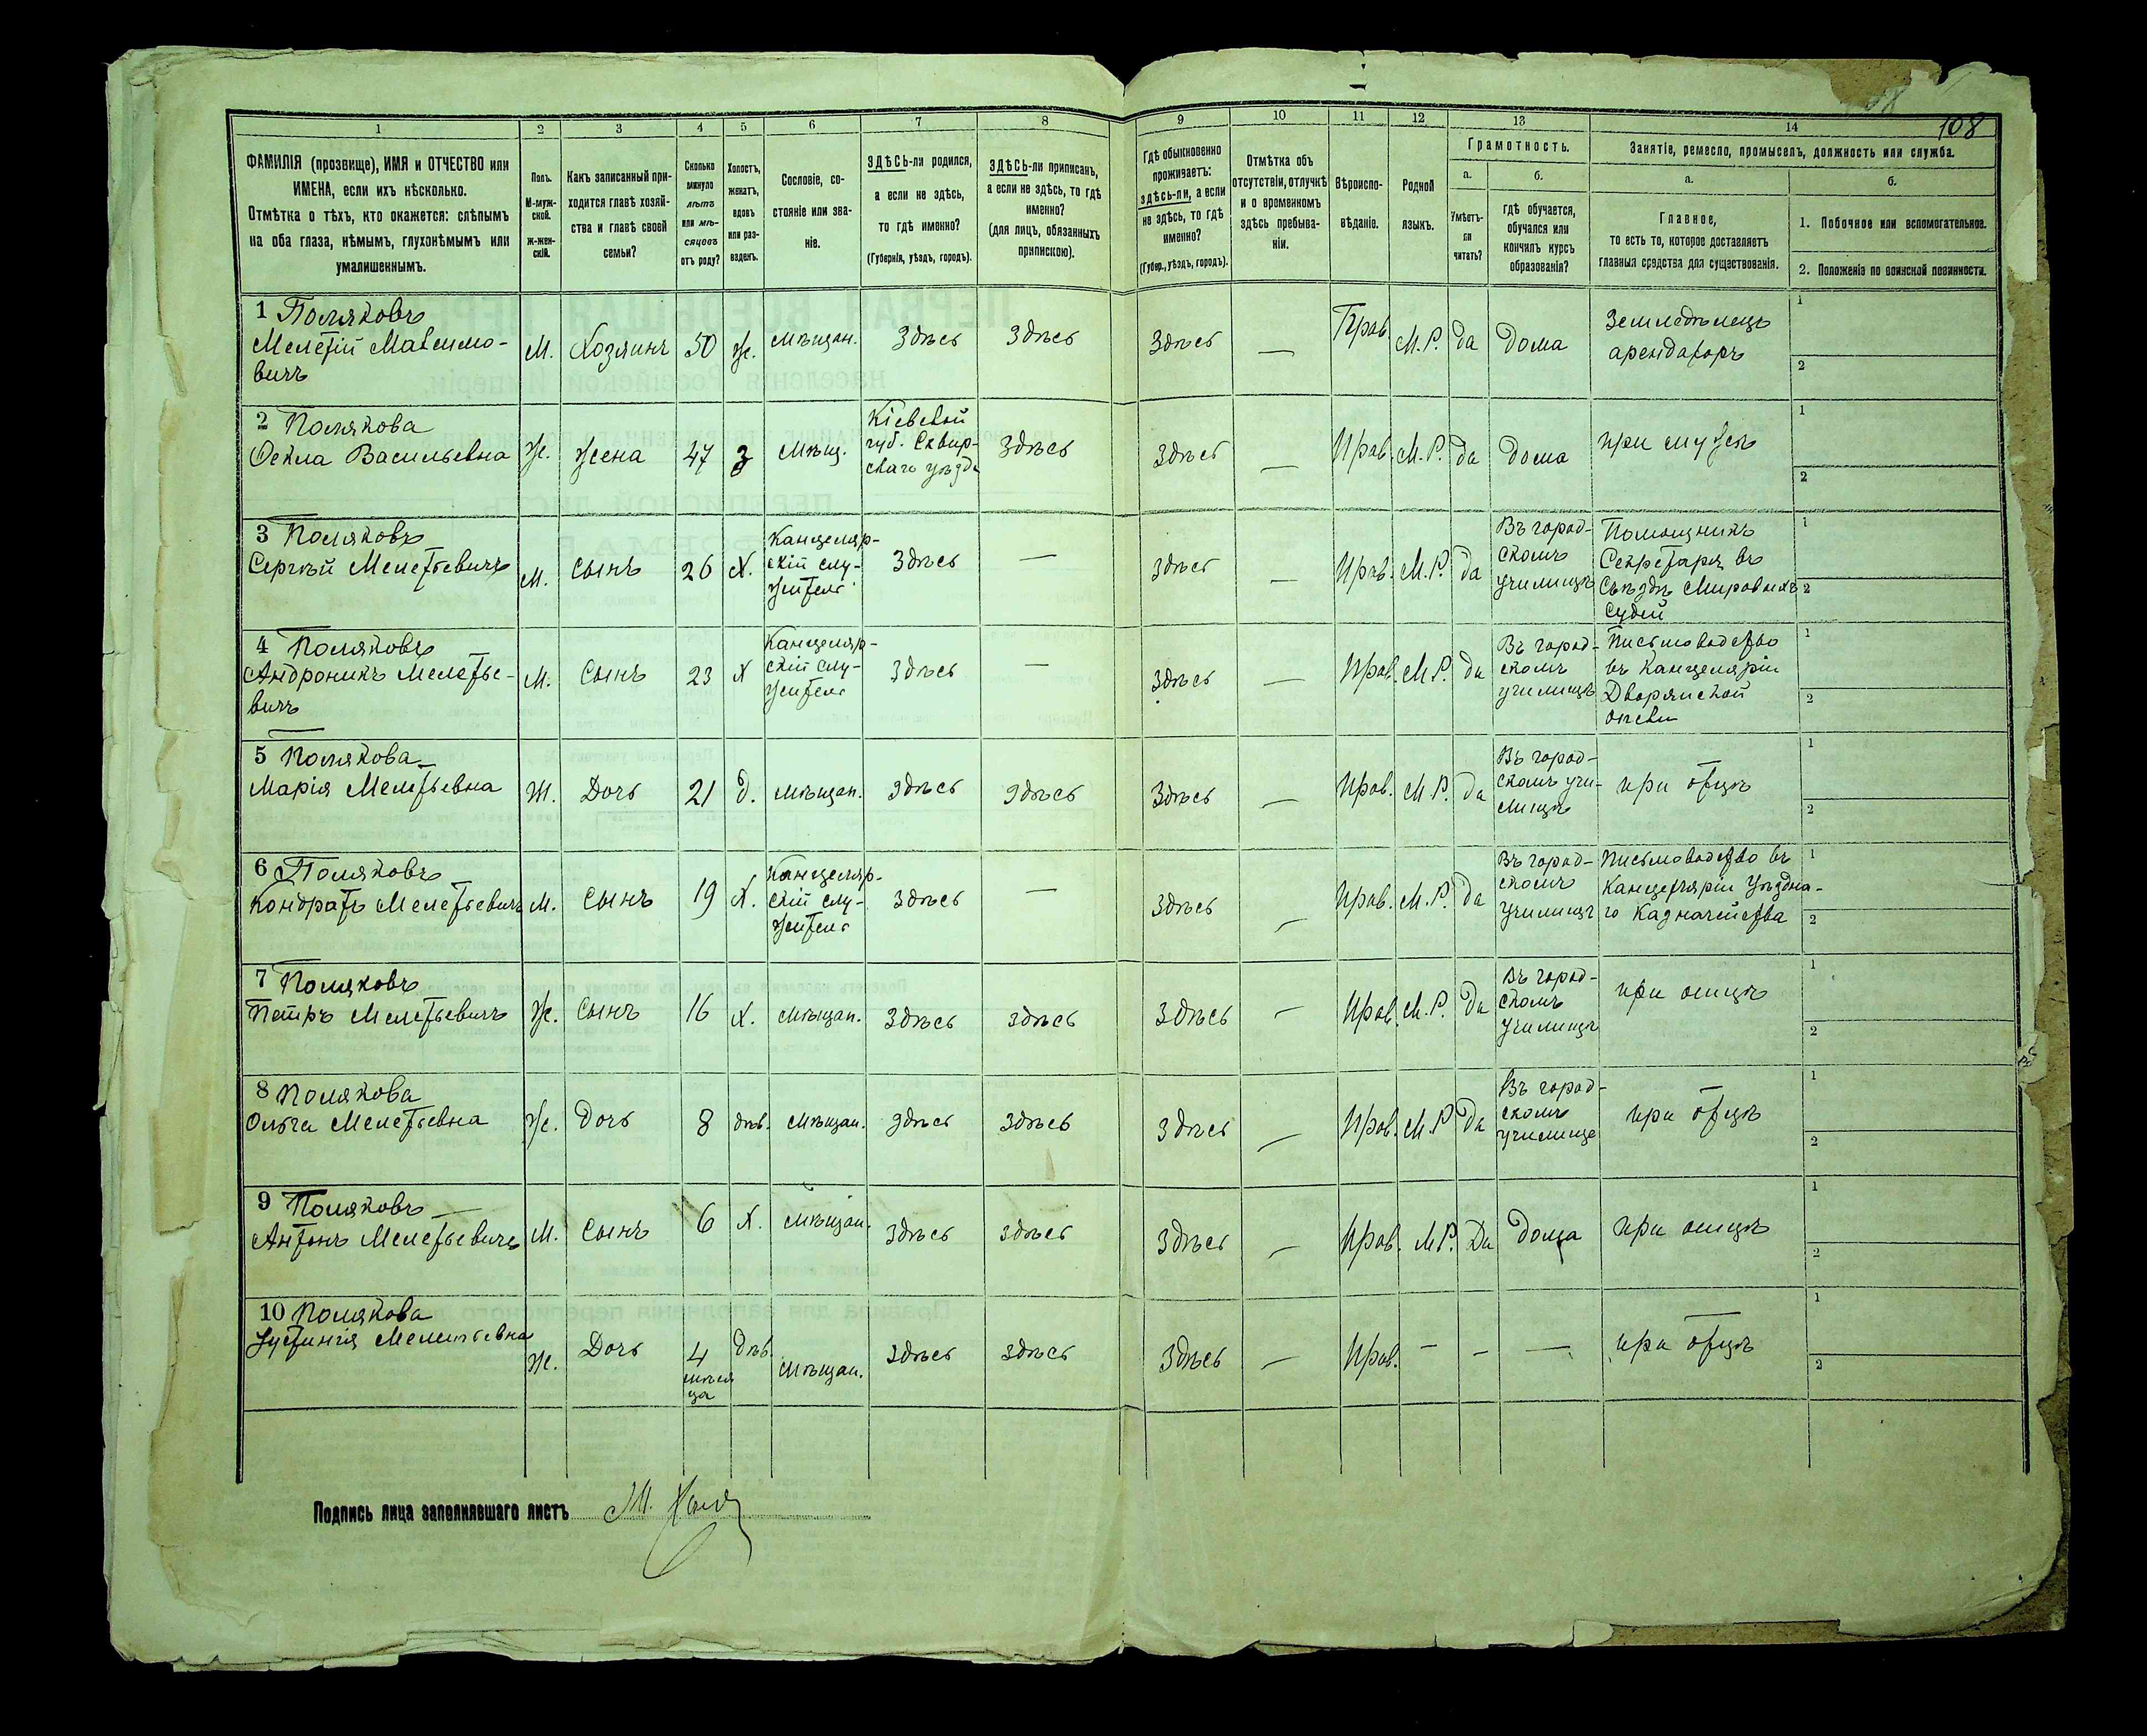 108
1
2
3
4
5
6
7
8
9
10
11
12
13
14
ФАМИЛІЯ (прозвище), ИМЯ и ОТЧЕСТВО или
ИМЕНА, если ихъ нѣсколько.
Отмѣтка о тѣхъ, кто окажется: слѣпымъ
на оба глаза, нѣмымъ, глухонѣмымъ или
умалишеннымъ.
Полъ.
М-муж-
ской.
Ж-жен-
скій.
Какъ записанный при-
ходится главѣ хозяй-
ства и главѣ своей
семьи?
Сколько
минуло
лѣтъ
или мѣ-
сяцевъ
отъ роду?
Холостъ,
женатъ,
вдовъ
или раз-
веденъ.
Сословіе, со-
стояніе или зва-
ніе.
ЗДѢСЬ-ли родился,
а если не здѣсь,
то гдѣ именно?
(Губернія, уѣздъ, городъ).
ЗДѢСЬ-ли приписанъ,
а если не здѣсь, то гдѣ
именно?
(для лицъ, обязанныхъ
припискою).
Гдѣ обыкновенно
проживаетъ:
здѣсь-ли, а если
не здѣсь, то гдѣ
именно?
(Губер., уѣздъ, городъ).
Отмѣтка объ
отсутствіи, отлучкѣ
и о временномъ
здѣсь пребыва-
ніи.
Вѣроиспо-
вѣданіе.
Родной
языкъ.
Грамотность.
а.
Умѣетъ-
ли
читать?
б.
гдѣ обучается,
обучался или
кончилъ курсъ
образованія?
Занятіе, ремесло, промыселъ, должность или служба.
а.
Главное,
то есть то, которое доставляетъ
главныя средства для существованія.
б.
1. Побочное или вспомогательное.
2. Положеніе по воинской повинности.
1 Поляковъ
Мелетій Максимо-
вичъ
М. Хозяинъ 50 Ж. мѣщан. Здѣсь Здѣсь Здѣсь — Прав. М.Р. да Дома
Земледѣлецъ
арендаторъ
1
2
2 Полякова
Ѳекла Васильевна
Ж. Жена 47 З мѣщ.
Кіевской
губ. Сквир-
скаго уѣзда
Здѣсь Здѣсь — Прав. М.Р. да дома при мужѣ
1
2
3 Поляковъ
Сергѣй Мелетьевичъ
М. Сынъ 26 Х.
Канцеляр-
скій слу-
житель
Здѣсь — Здѣсь — Прав. М.Р. да
Въ город-
скомъ
училищѣ
Помощникъ
Секретаря въ
Съѣздѣ Мировыхъ
Судей
1
2
4 Поляковъ
Андроникъ Мелетье-
вичъ
М. Сынъ 23 Х
Канцеляр-
скій слу-
житель
Здѣсь — Здѣсь — Прав. М.Р. да
Въ город-
скомъ
училищѣ
Письмоводство
въ Канцеляріи
Дворянской
опеки
1
2
5 Полякова
Марія Мелетьевна
Ж. Дочь 21 д. мѣщан. здѣсь здѣсь Здѣсь — Прав. М.Р. да
Въ город-
скомъ учи-
лищѣ
при отцѣ
1
2
6 Поляковъ
Кондратъ Мелетьевичъ
М. Сынъ 19 Х.
Канцеляр-
скій слу-
житель
Здѣсь — Здѣсь — Прав. М.Р. да
Въ город-
скомъ
училищѣ
Письмоводство въ
Канцеляріи Уѣздна-
го Казначейства
1
2
7 Поляковъ
Петръ Мелетьевичъ
Ж. Сынъ 16 Х. мѣщан. Здѣсь здѣсь Здѣсь — Прав. М.Р. Да
Въ город-
скомъ
училищѣ
при отцѣ
1
2
8 Полякова
Ольга Мелетьевна
Ж. Дочь 8 дѣв. мѣщан. здѣсь Здѣсь Здѣсь — Прав. М.Р Да
Въ город-
скомъ
училище
при отцѣ
1
2
9 Поляковъ
Антонъ Мелетьевичъ
М. Сынъ 6 Х. мѣщан. здѣсь здѣсь Здѣсь — Прав. М.Р. Да дома при отцѣ
1
2
10 Полякова
Іустинія Мелетьевна
Ж. Дочь 4
мѣся
ца
дѣв. мѣщан. здѣсь здѣсь Здѣсь — Прав. — — — при отцѣ
1
2
Подпись лица заполнявшаго листъ М.